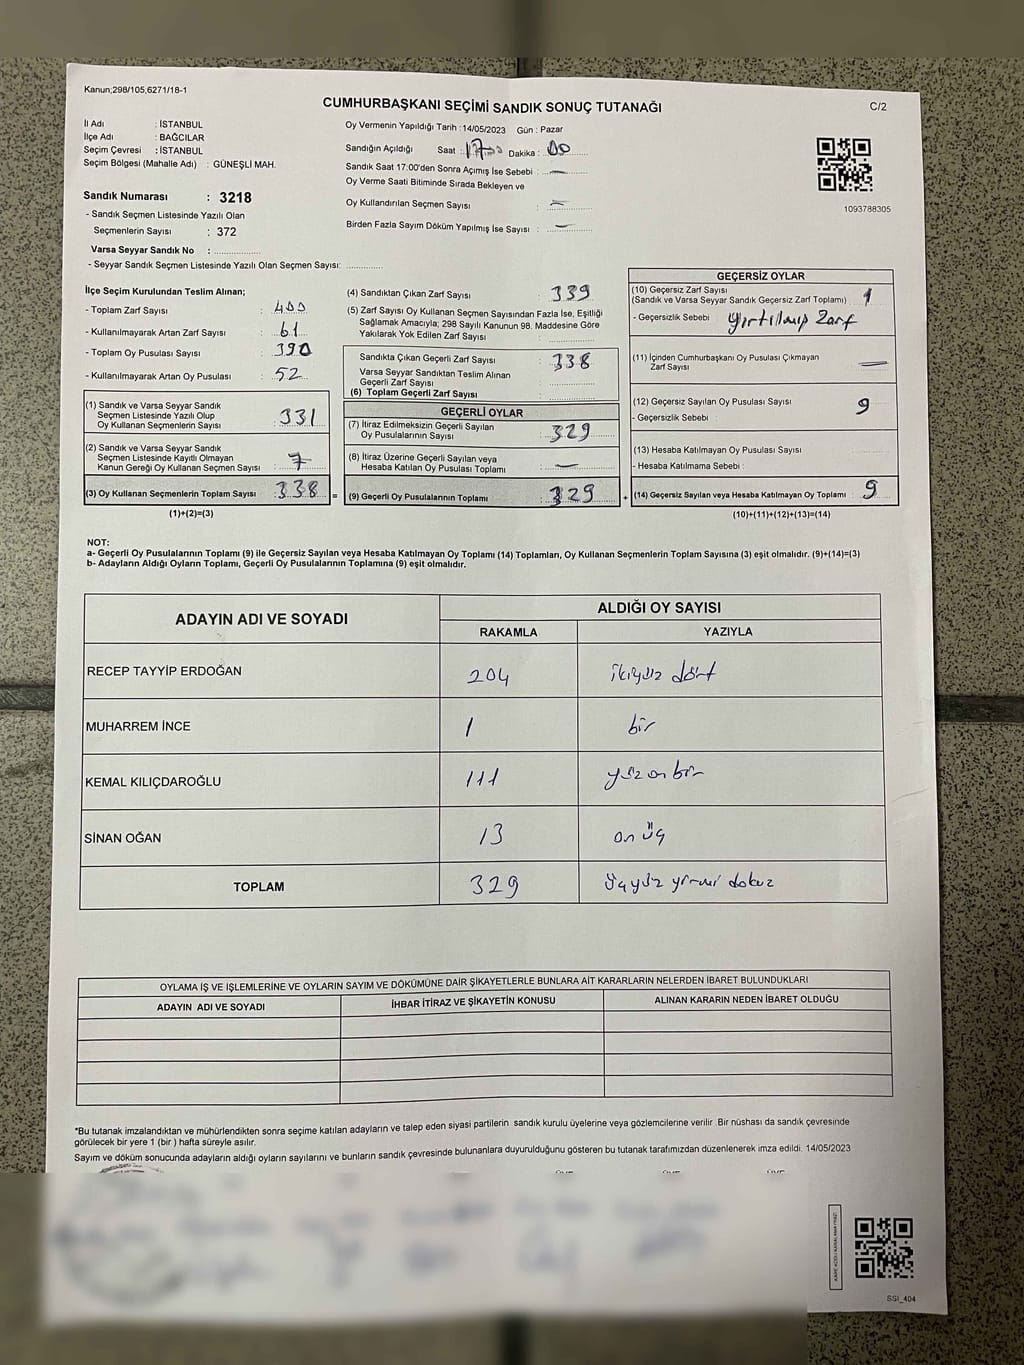 Kanun;298/105,6271/18-1
CUMHURBAŞKANI SEÇİMİ SANDIK SONUÇ TUTANAĞI
C/2
İl Adı : İSTANBUL
İlçe Adı : BAĞCILAR
Seçim Çevresi : İSTANBUL
Seçim Bölgesi (Mahalle Adı) : GÜNEŞLİ MAH.
Sandık Numarası : 3218
- Sandık Seçmen Listesinde Yazılı Olan
Seçmenlerin Sayısı : 372
Varsa Seyyar Sandık No :
- Seyyar Sandık Seçmen Listesinde Yazılı Olan Seçmen Sayısı:
Oy Vermenin Yapıldığı Tarih :14/05/2023 Gün : Pazar
Sandığın Açıldığı Saat : 17:00 Dakika : 00
Sandık Saat 17:00'den Sonra Açımış İse Sebebi : —
Oy Verme Saati Bitiminde Sırada Bekleyen ve
Oy Kullandırılan Seçmen Sayısı :
Birden Fazla Sayım Döküm Yapılmış İse Sayısı : —
1093788305
İlçe Seçim Kurulundan Teslim Alınan;
- Toplam Zarf Sayısı : 400
- Kullanılmayarak Artan Zarf Sayısı : 61
- Toplam Oy Pusulası Sayısı : 390
- Kullanılmayarak Artan Oy Pusulası : 52
(1) Sandık ve Varsa Seyyar Sandık
Seçmen Listesinde Yazılı Olup
Oy Kullanan Seçmenlerin Sayısı : 331
(2) Sandık ve Varsa Seyyar Sandık
Seçmen Listesinde Kayıtlı Olmayan
Kanun Gereği Oy Kullanan Seçmen Sayısı : 7
(3) Oy Kullanan Seçmenlerin Toplam Sayısı : 338 =
(1)+(2)=(3)
(4) Sandıktan Çıkan Zarf Sayısı : 339
(5) Zarf Sayısı Oy Kullanan Seçmen Sayısından Fazla İse, Eşitliği
Sağlamak Amacıyla; 298 Sayılı Kanunun 98. Maddesine Göre
Yakılarak Yok Edilen Zarf Sayısı :
Sandıkta Çıkan Geçerli Zarf Sayısı : 338
Varsa Seyyar Sandıktan Teslim Alınan
Geçerli Zarf Sayısı :
(6) Toplam Geçerli Zarf Sayısı :
GEÇERLİ OYLAR
(7) İtiraz Edilmeksizin Geçerli Sayılan
Oy Pusulalarının Sayısı : 329
(8) İtiraz Üzerine Geçerli Sayılan veya
Hesaba Katılan Oy Pusulası Toplamı : —
(9) Geçerli Oy Pusulalarının Toplamı : 329 +
GEÇERSİZ OYLAR
(10) Geçersiz Zarf Sayısı
(Sandık ve Varsa Seyyar Sandık Geçersiz Zarf Toplamı) : 1
- Geçersizlik Sebebi : yırtılmış Zarf
(11) İçinden Cumhurbaşkanı Oy Pusulası Çıkmayan
Zarf Sayısı : —
(12) Geçersiz Sayılan Oy Pusulası Sayısı : 9
- Geçersizlik Sebebi :
(13) Hesaba Katılmayan Oy Pusulası Sayısı :
- Hesaba Katılmama Sebebi :
(14) Geçersiz Sayılan veya Hesaba Katılmayan Oy Toplamı : 9
(10)+(11)+(12)+(13)=(14)
NOT:
a- Geçerli Oy Pusulalarının Toplamı (9) ile Geçersiz Sayılan veya Hesaba Katılmayan Oy Toplamı (14) Toplamları, Oy Kullanan Seçmenlerin Toplam Sayısına (3) eşit olmalıdır. (9)+(14)=(3)
b- Adayların Aldığı Oyların Toplamı, Geçerli Oy Pusulalarının Toplamına (9) eşit olmalıdır.
ADAYIN ADI VE SOYADI
ALDIĞI OY SAYISI
RAKAMLA YAZIYLA
RECEP TAYYİP ERDOĞAN 204 ikiyüz dört
MUHARREM İNCE 1 bir
KEMAL KILIÇDAROĞLU 111 yüz on bir
SİNAN OĞAN 13 on üç
TOPLAM 329 üçyüz yirmi dokuz
OYLAMA İŞ VE İŞLEMLERİNE VE OYLARIN SAYIM VE DÖKÜMÜNE DAİR ŞİKAYETLERLE BUNLARA AİT KARARLARIN NELERDEN İBARET BULUNDUKLARI
ADAYIN ADI VE SOYADI İHBAR İTİRAZ VE ŞİKAYETİN KONUSU ALINAN KARARIN NEDEN İBARET OLDUĞU
*Bu tutanak imzalandıktan ve mühürlendikten sonra seçime katılan adayların ve talep eden siyasi partilerin sandık kurulu üyelerine veya gözlemcilerine verilir .Bir nüshası da sandık çevresinde
görülecek bir yere 1 (bir ) hafta süreyle asılır.
Sayım ve döküm sonucunda adayların aldığı oyların sayılarını ve bunların sandık çevresinde bulunanlara duyurulduğunu gösteren bu tutanak tarafımızdan düzenlenerek imza edildi. 14/05/2023
SSI_404